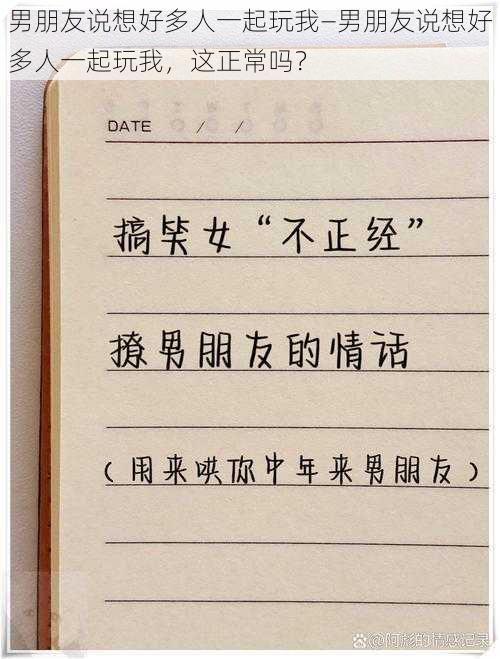 男朋友说想好多人一起玩我—男朋友说想好
多人一起玩我，这正常吗？
DATE / /
搞笑女“不正经”
撩男朋友的情话
（用来哄你中年来男朋友）
@阿彪的情感记录